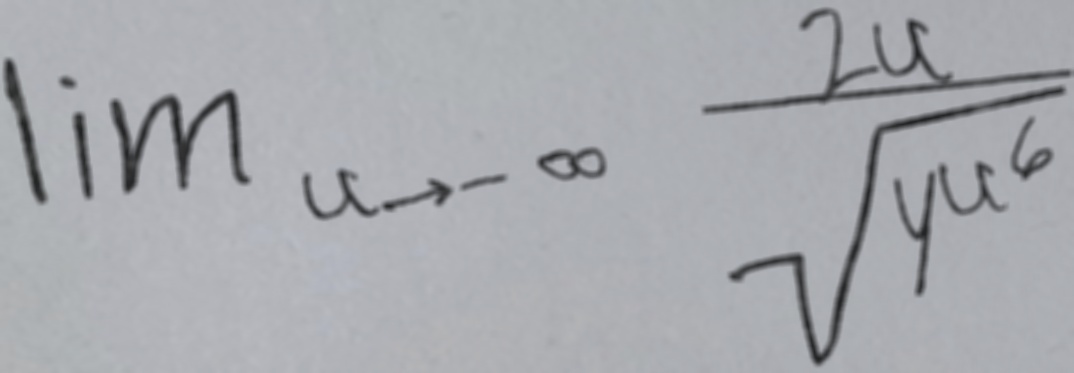 \lim_{u \to -\infty} \frac{2u}{\sqrt{yu^6}}